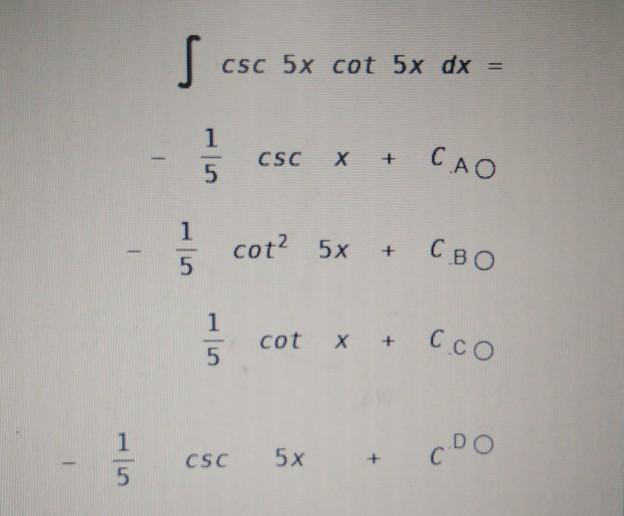 ∫ csc 5x cot 5x dx =
- 1/5 csc x + C .A
- 1/5 cot² 5x + C .B
1/5 cot x + C .C
- 1/5 csc 5x + C .D